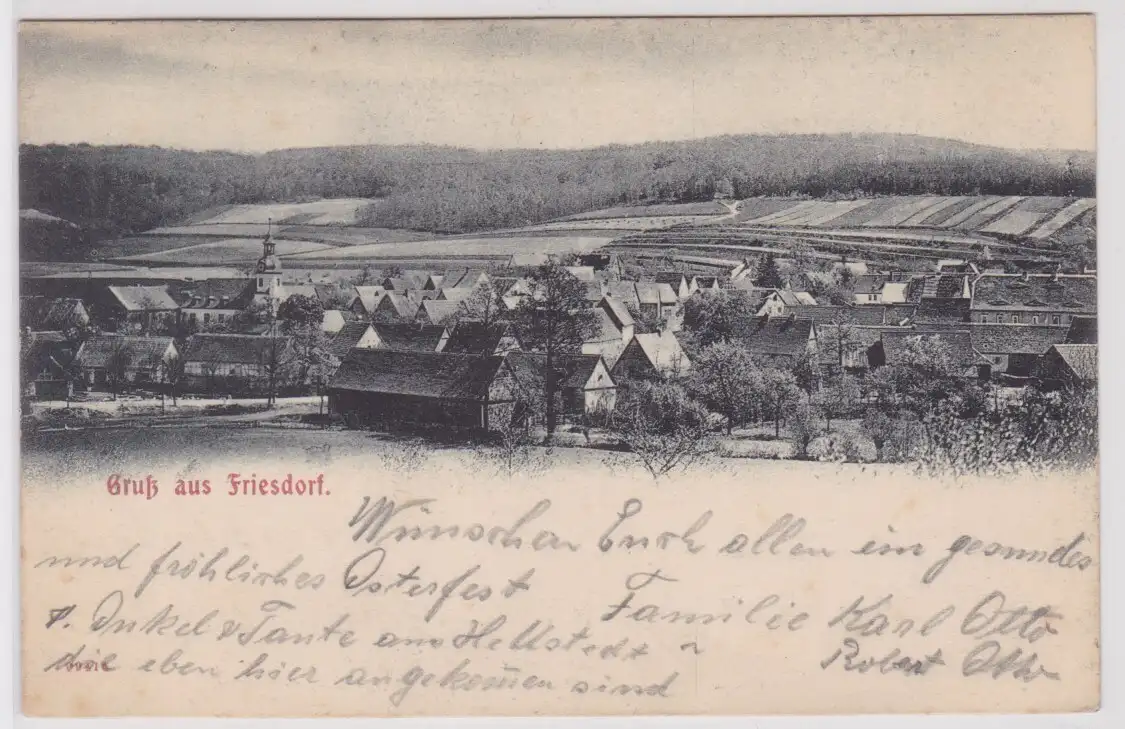 Gruß aus Friesdorf.
Wünschen Euch allen ein gesundes
und fröhliches Osterfest
Familie Karl Otto
Robert Otto
Onkel & Tante aus Hettstedt
die eben hier angekom̅en sind